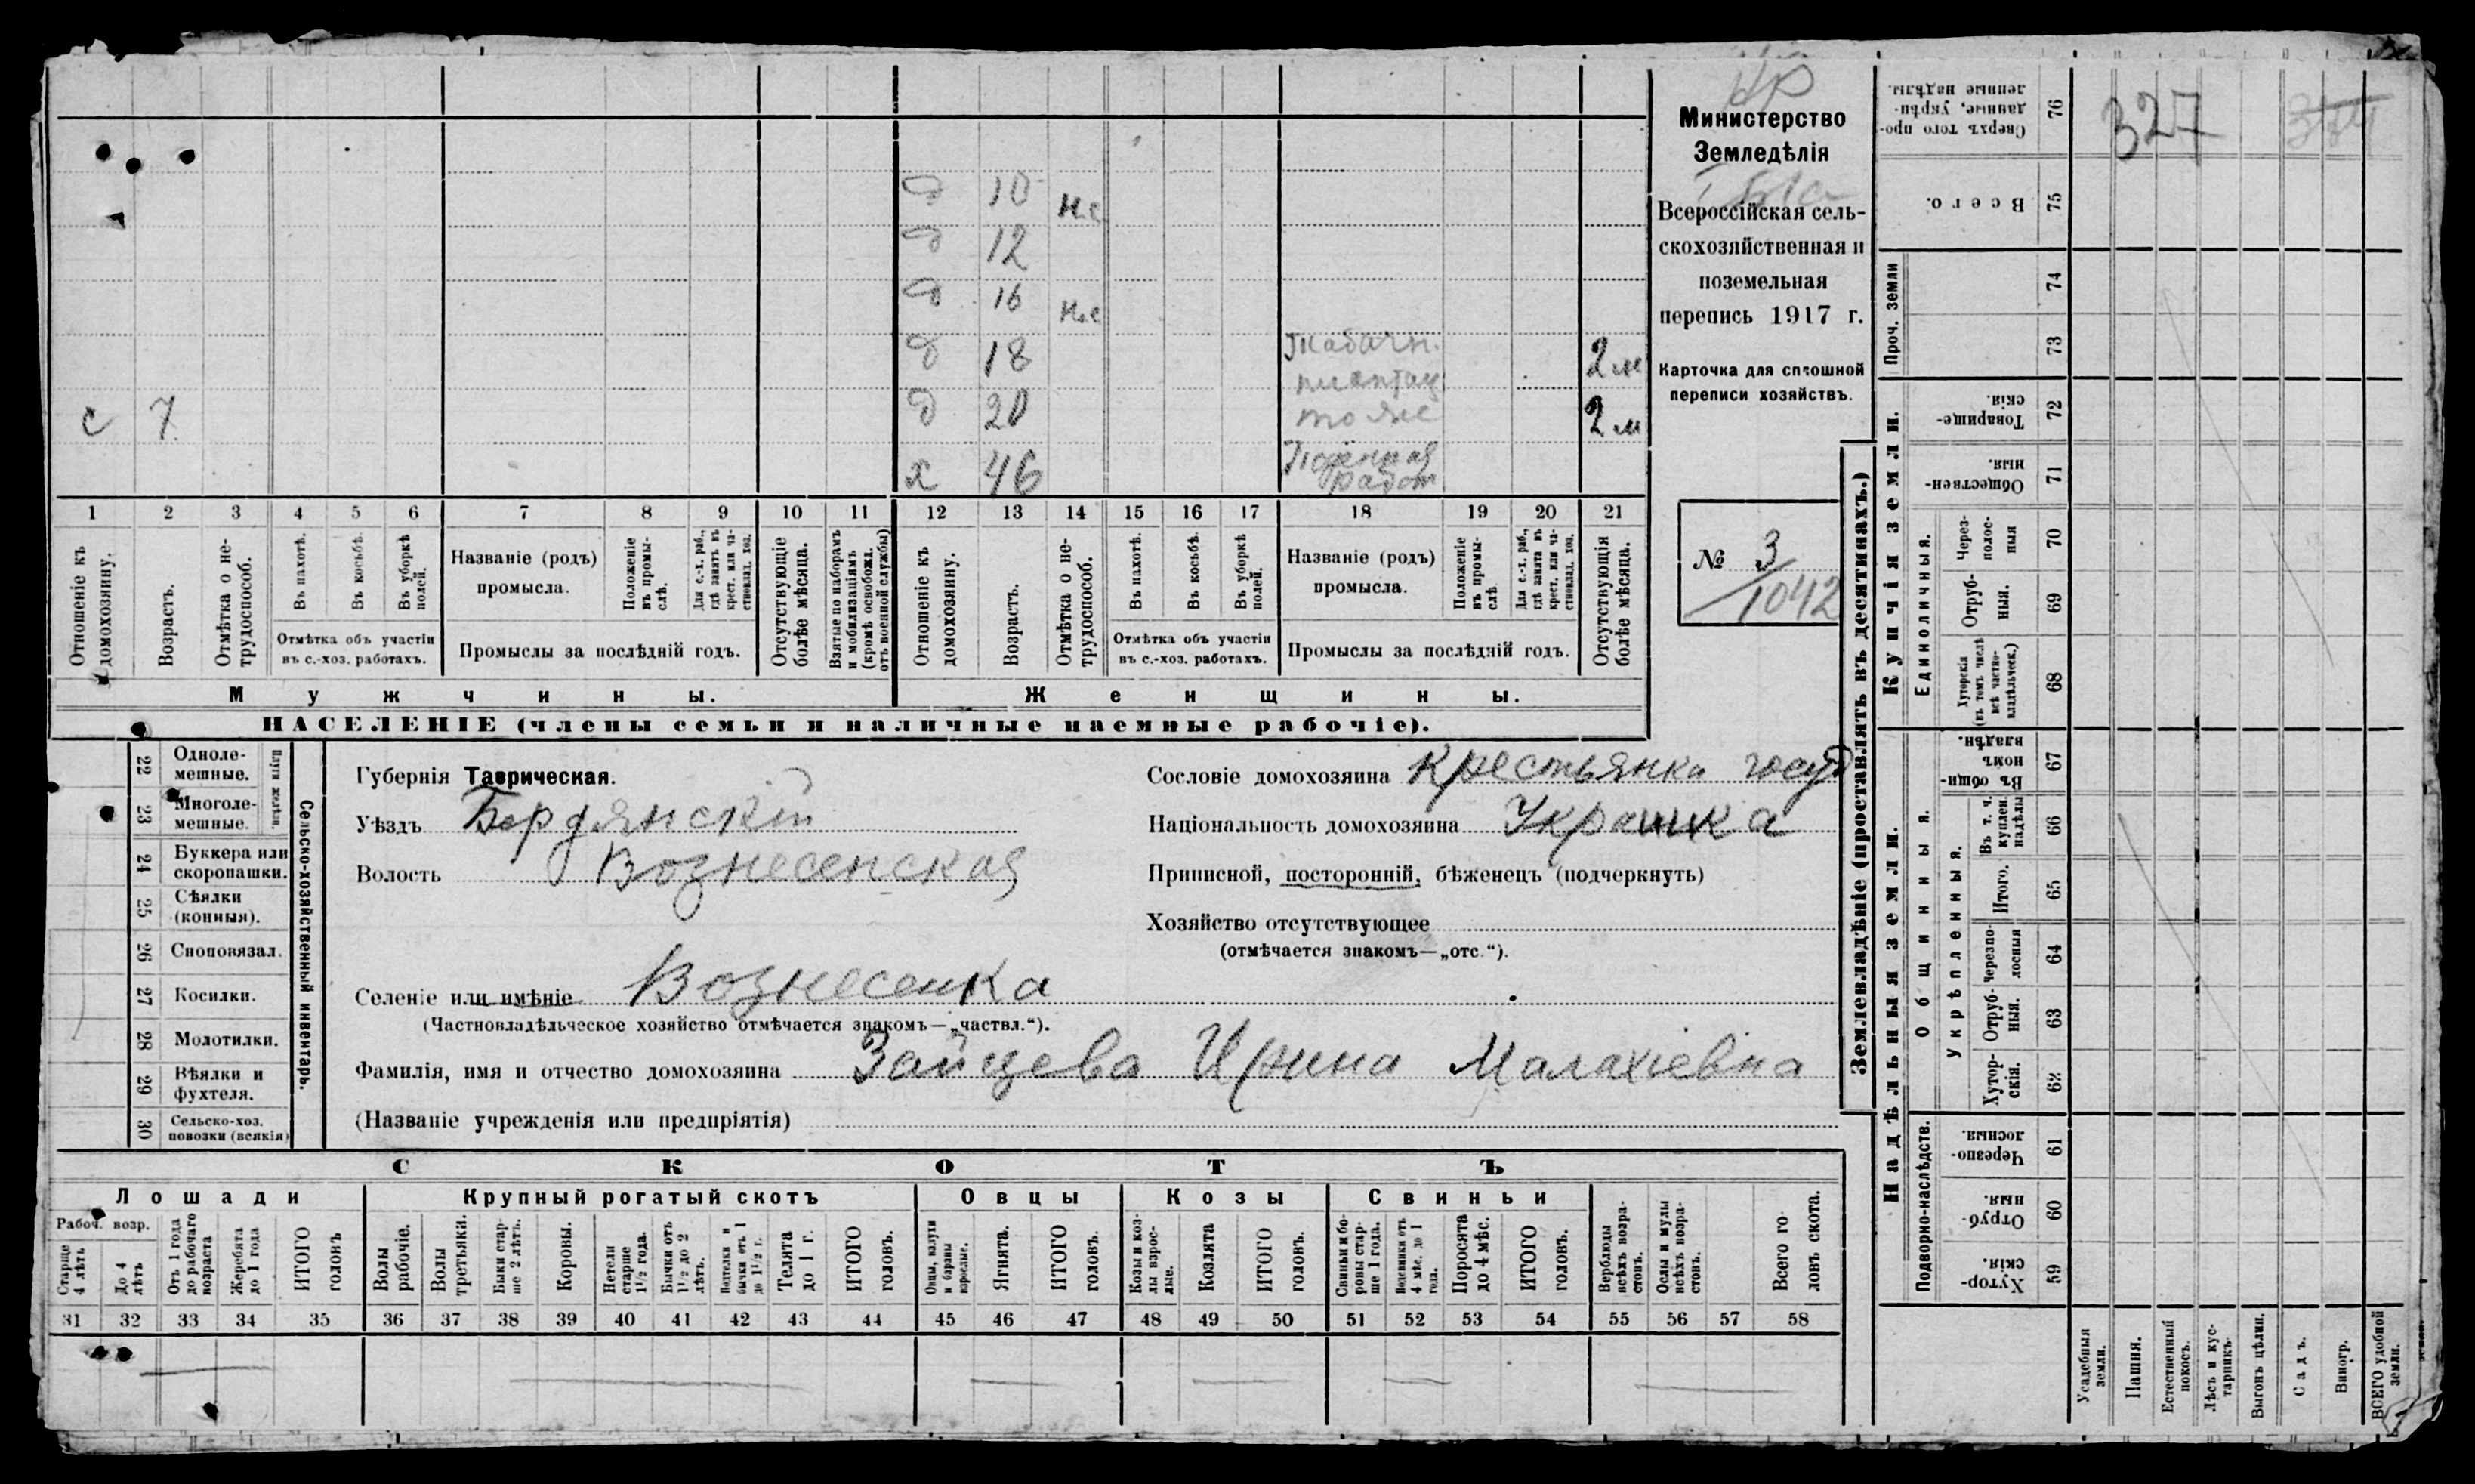 Министерство
Земледѣлія
Всероссійская сель-
скохозяйственная и
поземельная
перепись 1917 г.
Карточка для сплошной
переписи хозяйствъ.
№ 3
1042
д 10 н.с
д 12
д 16 н.с
д 18 Табачн. 2 м
плантац
с 7 д 20 тоже 2 м
х 46 Поденная
работ
1 2 3 4 5 6 7 8 9 10 11 12 13 14 15 16 17 18 19 20 21
Отношеніе къ домохозяину.
Возрастъ.
Отмѣтка о не-трудоспособ.
Въ пахотѣ.
Въ косьбѣ.
Въ уборкѣ полей.
Отмѣтка объ участіи
въ с.-хоз. работахъ.
Названіе (родъ)
промысла.
Положеніе въ промы-слѣ.
Для с.-х. раб., гдѣ занятъ въ крест. или ча-стновлад. хоз.
Промыслы за послѣдній годъ.
Отсутствующіе болѣе мѣсяца.
Взятые по наборамъ и мобилизаціямъ (кромѣ освобожд. отъ военной службы)
Отношеніе къ домохозяину.
Возрастъ.
Отмѣтка о не-трудоспособ.
Въ пахотѣ.
Въ косьбѣ.
Въ уборкѣ полей.
Отмѣтка объ участіи
въ с.-хоз. работахъ.
Названіе (родъ)
промысла.
Положеніе въ промы-слѣ
Для с.-х. раб., гдѣ занятъ въ крест. или ча-стновлад. хоз.
Промыслы за послѣдній годъ.
Отсутствующія болѣе мѣсяца.
Мужчины. Женщины.
НАСЕЛЕНІЕ (члены семьи и наличные наемные рабочіе).
22 Одноле-мешные.
23 Многоле-мешные.
Плуги желѣзн.
24 Буккера или скоропашки.
25 Сѣялки (конныя).
26 Сноповязал.
27 Косилки.
28 Молотилки.
29 Вѣялки и фухтеля.
30 Сельско-хоз. повозки (всякія)
Сельско-хозяйственный инвентарь.
Губернія Таврическая.
Уѣздъ Бердянскій
Волость Вознесенская
Селеніе или имѣніе Вознесенка
(Частновладѣльческое хозяйство отмѣчается знакомъ—„частвл.“).
Сословіе домохозяина Крестьянка госуд
Національность домохозяина Украинка
Приписной, посторонній, бѣженецъ (подчеркнуть)
Хозяйство отсутствующее
(отмѣчается знакомъ—„отс.“).
Фамилія, имя и отчество домохозяина Зайцева Ирина Малахіевна
(Названіе учрежденія или предпріятія)
СКОТЪ
Лошади Крупный рогатый скотъ Овцы Козы Свиньи
Рабоч. возр.
Старше 4 лѣтъ
До 4 лѣтъ
Отъ 1 года до рабочаго возраста
Жеребята до 1 года
ИТОГО головъ
Волы рабочіе.
Волы третьяки.
Быки стар-ше 2 лѣтъ.
Коровы.
Нетели старше 1½ года.
Бычки отъ 1½ до 2 лѣтъ.
Телята до 1 г.
ИТОГО головъ.
Ягнята.
ИТОГО головъ.
Козы и коз-лы взрос-лые.
Козлята
ИТОГО головъ.
Свиньи и бо-ровы стар-ше 1 года.
Поросята до 4 мѣс.
ИТОГО головъ.
Верблюды всѣхъ возра-стовъ.
Ослы и мулы всѣхъ возра-стовъ.
Всего го-ловъ скота.
31 32 33 34 35 36 37 38 39 40 41 42 43 44 45 46 47 48 49 50 51 52 53 54 55 56 57 58
Землевладѣніе (проставлять въ десятинахъ.)
Надѣльныя земли. Купчія земли. Проч. земли
Подворно-наслѣдств. Общинныя. Укрѣпленныя. Единоличныя.
59 Хутор-скія.
60 Отруб-ныя.
61 Черезпо-лосныя.
62 Хутор-скія.
63 Отруб-ныя.
64 Черезпо-лосныя
65 Итого.
66 Въ т. ч. куплен. надѣлы
67 Въ общи-номъ владѣн.
68 Хуторскія (въ томъ числѣ всѣ частно-владѣльческ.)
69 Отруб-ныя.
70 Через-полос-ныя
71 Обществен-ныя.
72 Товарище-скія.
73
74
75 Всего.
76 Сверхъ того про-данные, укрѣп-ленные надѣлы.
327
Усадебныя земли.
Пашня.
Естественный покосъ.
Лѣсъ и кус-тарникъ
Выгонъ цѣлин.
Садъ.
Виногр.
ВСЕГО удобной земли.